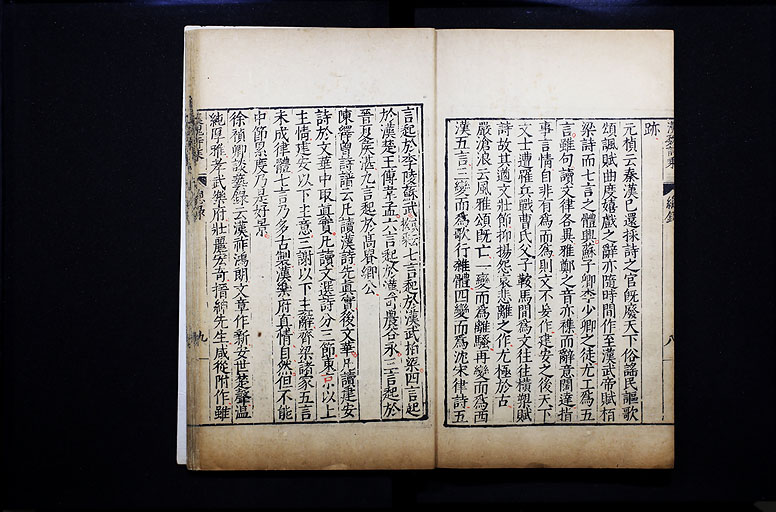 跡
元稹云秦漢已還採詩之官既廢天下俗謠民謳歌
頌諷賦曲度嬉戲之辭亦隨時間作至漢武帝賦栢
梁詩而七言之體興蘇子卿李少卿之徒尤工爲五
言雖句讀文律各異雅鄭之音亦雜而辭意闊達指
事言情自非有爲而爲則文不妄作建安之後天下
文士遭罹兵戰曹氏父子鞍馬間爲文往往橫槊賦
詩故其遒文壯節抑揚怨哀悲離之作尤極於古
嚴滄浪云風雅頌既亡一變而爲離騷再變而爲西
漢五言三變而爲歌行雜體四變而爲沈宋律詩五
言起於李陵蘇武七言起於漢武柏梁四言起
於漢楚王傅韋孟六言起於漢司農谷永三言起於
晉夏侯湛九言起於高貴鄉公
陳繹曾詩譜云凡讀漢詩先真實後文華凡讀建安
詩於文華中取真實凡讀文選詩分三節東京以上
主情建安以下主意三謝以下主辭齊梁諸家五言
未成律體七言乃多古製漢樂府真情自然但不能
中節累度乃是好景
徐禎卿談藝錄云漢祚鴻朗文章作新安世楚聲溫
純厚雅孝武樂府壯麗宏奇搢紳先生咸從附作雖
總錄
八
總錄
九